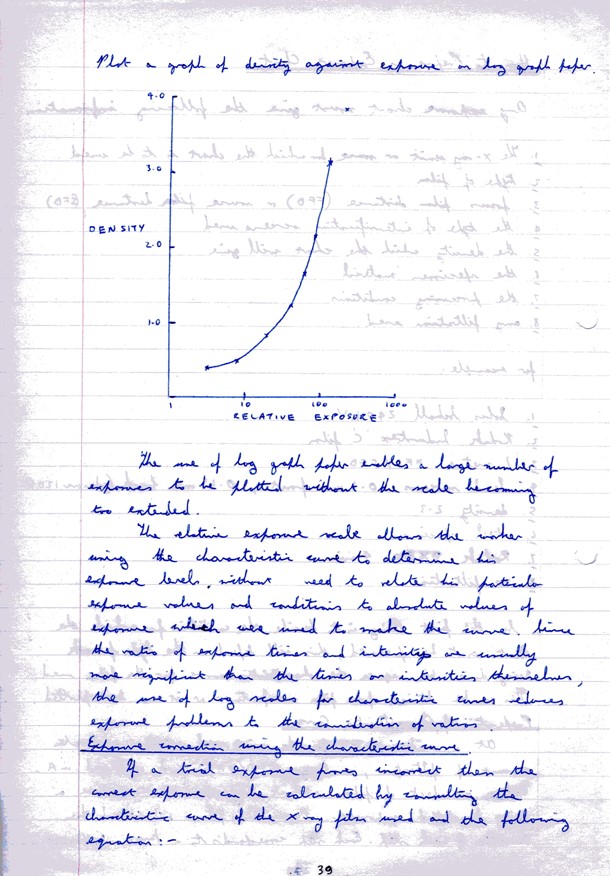 Plot a graph of density against exposure on log graph paper.
4.0
3.0
DENSITY
2.0
1.0
1 10 100 1000
RELATIVE EXPOSURE
The use of log graph paper enables a large number of
exposures to be plotted without the scale becoming
too extended.
The relative exposure scale allows the worker
using the characteristic curve to determine his
exposure levels, without need to relate his particular
exposure values and conditions to absolute values of
exposure which were used to make the curve. Since
the ratio of exposure times and intensities are usually
more significant than the times or intensities themselves,
the use of log scales for characteristic curves reduces
exposure problems to the consideration of ratios.
Exposure correction using the characteristic curve.
If a trial exposure proves incorrect then the
correct exposure can be calculated by consulting the
characteristic curve of the X ray film used and the following
equation:-
39